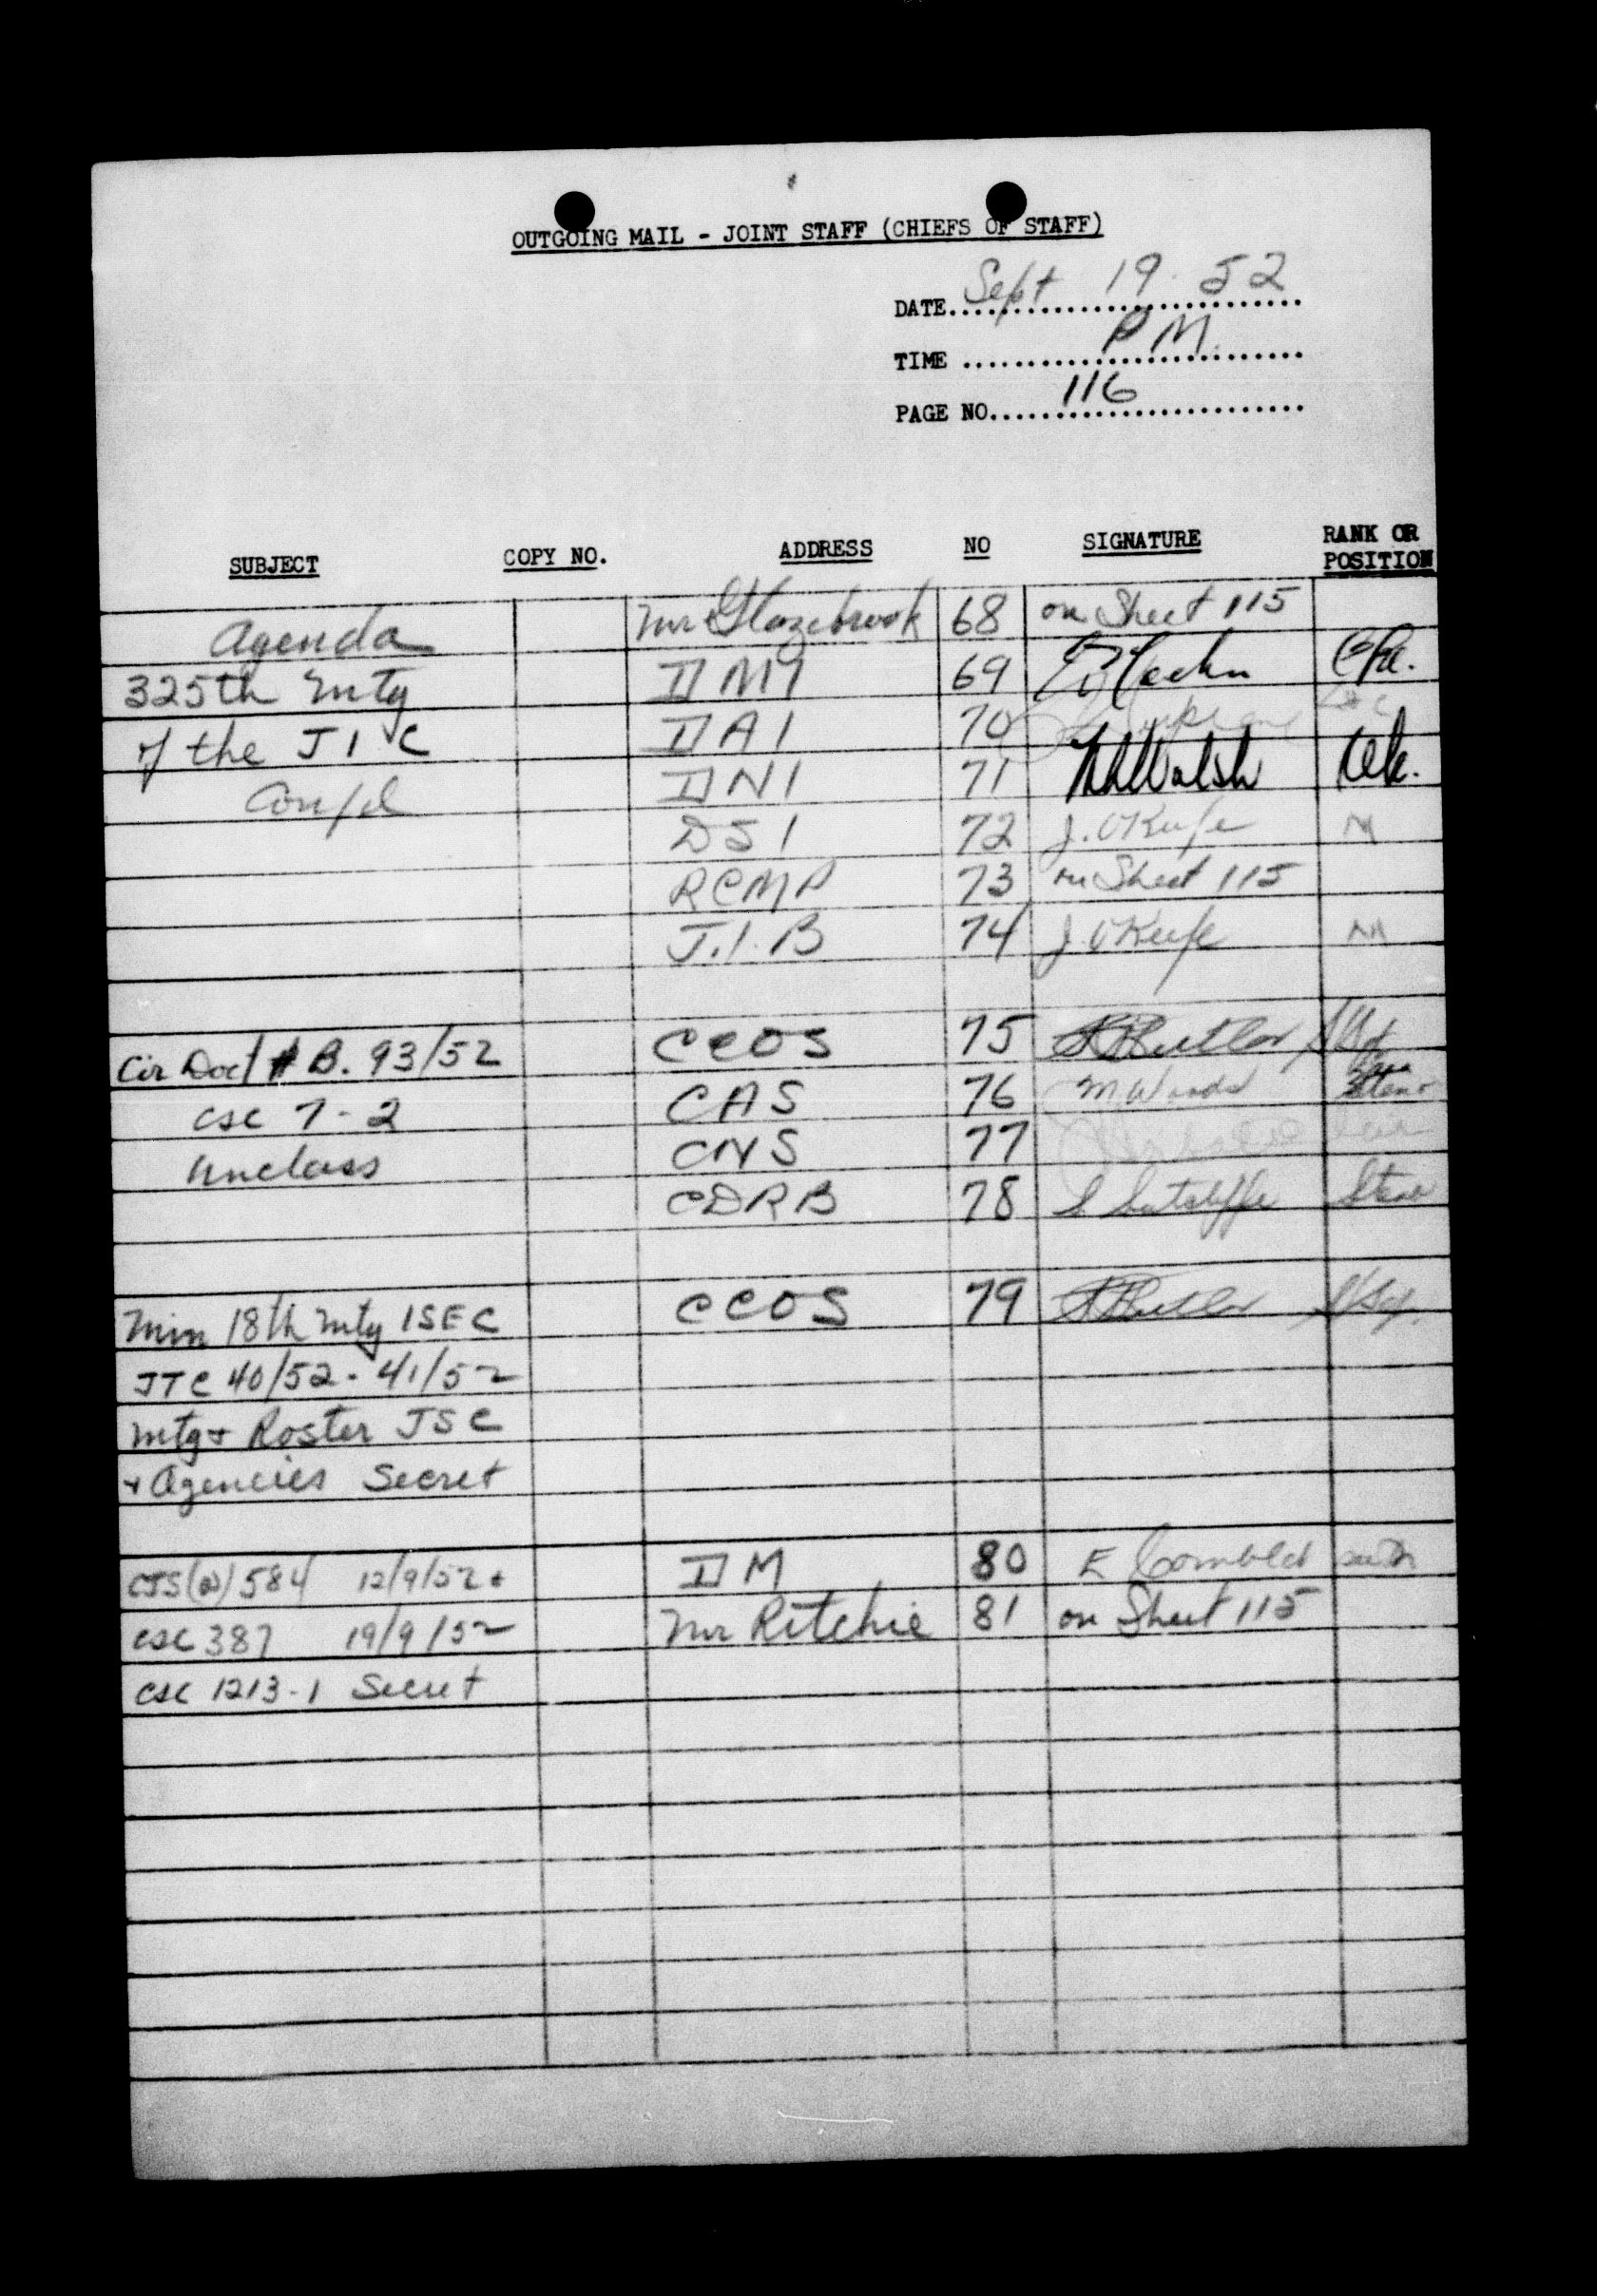 OUTGOING MAIL - JOINT STAFF (CHIEFS OF STAFF)
DATE Sept 19 52
TIME PM
PAGE NO. 116
SUBJECT COPY NO. ADDRESS NO SIGNATURE RANK OR POSITION
Agenda Mr Glazebrook 68 on Sheet 115
325th Mtg DMI 69
of the JIC DAI 70
Confd DNI 71 Walsh
DSI 72 J. O'Keefe
RCMP 73 on Sheet 115
J.I.B 74 J. O'Keefe
Cir Doc # B. 93/52 CCOS 75 Butler
CSC 7-2 CAS 76 M. Woods Steno
Unclass CNS 77
CDRB 78 S Sutcliffe Steno
Min 18th Mtg ISEC CCOS 79 Butler
JTC 40/52 - 41/52
Mtg + Roster JSC
+ Agencies Secret
584 12/9/52 + DM 80 E
CSC 387 19/9/52 Mr Ritchie 81 on Sheet 115
CSC 1213-1 Secret